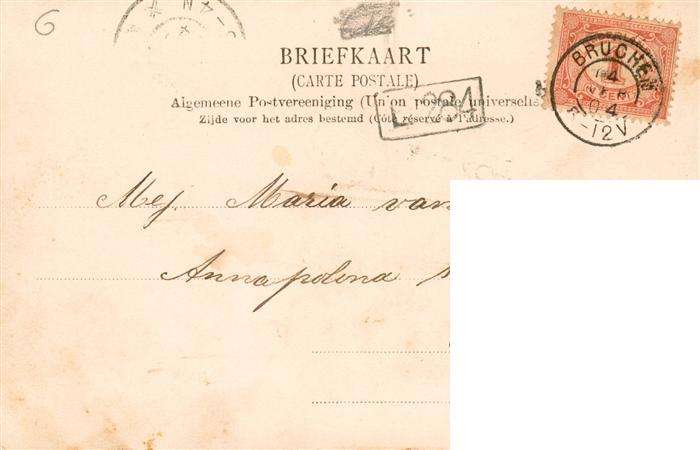 6
BRIEFKAART
(CARTE POSTALE)
Algemeene Postvereeniging (Union postale universelle
Zijde voor het adres bestemd (Côté réservé à l'adresse.)
BRUCHEM
4
04
-12V
Mej. Maria van
Annapolona